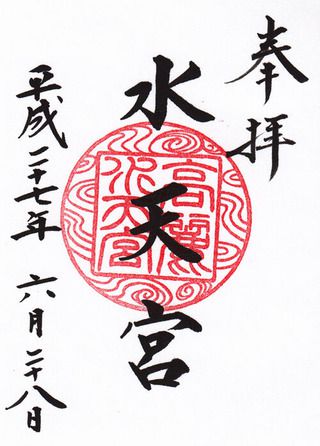 奉拝
水天宮
高麗
水天宮
平成二十七年 六月二十八日